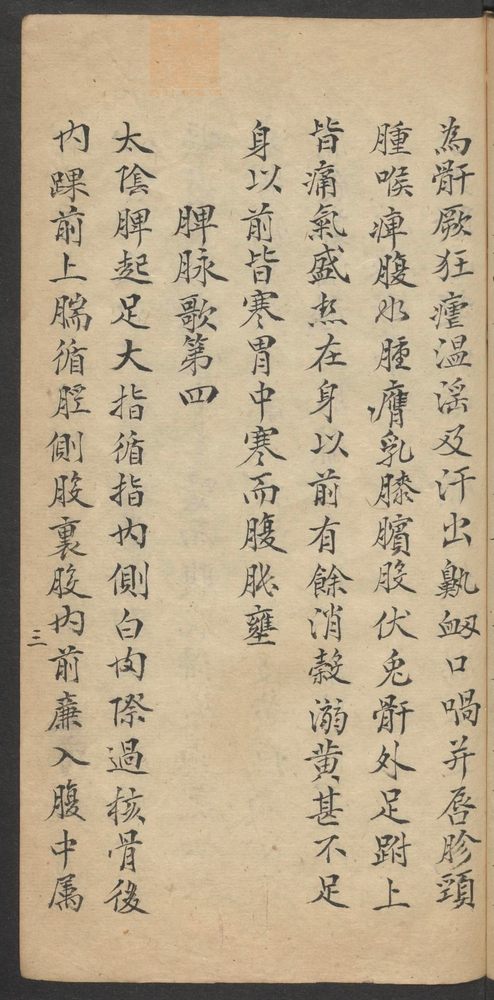 為骭厥狂瘧温滛及汗出鼽衂口喎并唇胗頸
腫喉痺腹水腫膺乳膝臏股伏兎骭外足跗上
皆痛氣盛热在身以前有餘消榖溺黄甚不足
身以前皆寒胃中寒而腹脹壅
脾脉歌第四
太陰脾起足大指循指内側白肉際過核骨後
内踝前上腨循脛側股裏股内前廉入腹中属
三